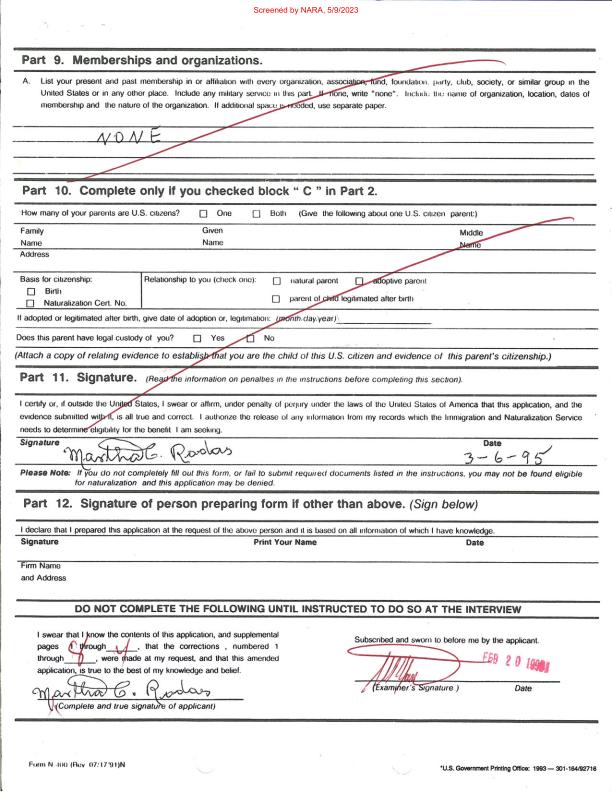 Screened by NARA, 5/9/2023
Part 9. Memberships and organizations.
A. List your present and past membership in or affiliation with every organization, association, fund, foundation, party, club, society, or similar group in the
United States or in any other place. Include any military service in this part. If none, write "none". Include the name of organization, location, dates of
membership and the nature of the organization. If additional space is needed, use separate paper.
NONE
Part 10. Complete only if you checked block " C " in Part 2.
How many of your parents are U.S. citizens? One Both (Give the following about one U.S. citizen parent:)
Family Given Middle
Name Name Name
Address
Basis for citizenship: Relationship to you (check one): natural parent adoptive parent
Birth
Naturalization Cert. No. parent of child legitimated after birth
If adopted or legitimated after birth, give date of adoption or, legitimation: (month/day/year)
Does this parent have legal custody of you? Yes No
(Attach a copy of relating evidence to establish that you are the child of this U.S. citizen and evidence of this parent's citizenship.)
Part 11. Signature. (Read the information on penalties in the instructions before completing this section).
I certify or, if outside the United States, I swear or affirm, under penalty of perjury under the laws of the United States of America that this application, and the
evidence submitted with it, is all true and correct. I authorize the release of any information from my records which the Immigration and Naturalization Service
needs to determine eligibility for the benefit I am seeking.
Signature Date
Martha C. Rodas 3-6-95
Please Note: If you do not completely fill out this form, or fail to submit required documents listed in the instructions, you may not be found eligible
for naturalization and this application may be denied.
Part 12. Signature of person preparing form if other than above. (Sign below)
I declare that I prepared this application at the request of the above person and it is based on all information of which I have knowledge.
Signature Print Your Name Date
Firm Name
and Address
DO NOT COMPLETE THE FOLLOWING UNTIL INSTRUCTED TO DO SO AT THE INTERVIEW
I swear that I know the contents of this application, and supplemental
pages through , that the corrections , numbered 1
through , were made at my request, and that this amended
application, is true to the best of my knowledge and belief.
Martha C. Rodas
(Complete and true signature of applicant)
Subscribed and sworn to before me by the applicant.
FEB 20
(Examiner's Signature ) Date
Form N-400 (Rev 07/17/91)N
*U.S. Government Printing Office: 1993 — 301-164/92716